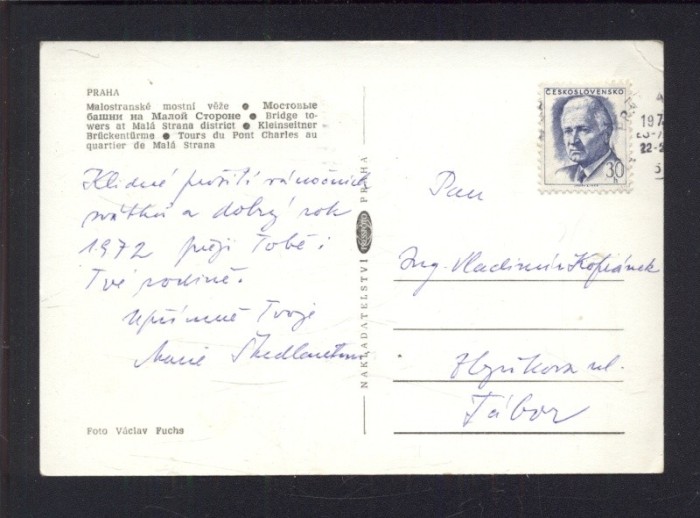 PRAHA
Malostranské mostní věže ● Мостовые
башни на Малой Стороне ● Bridge to-
wers at Malá Strana district ● Kleinseitner
Brückentürme ● Tours du Pont Charles au
quartier de Malá Strana
Klidné prožití vánočních
svátků a dobrý rok
1972 přeji Tobě i
Tvé rodině.
Upřímně Tvoje
Marie
Foto Václav Fuchs
NAKLADATELSTVÍ PRAHA
ČESKOSLOVENSKO
30 h
197
22-2
Pan
Ing. Vladimír Kofránek
ul.
Tábor